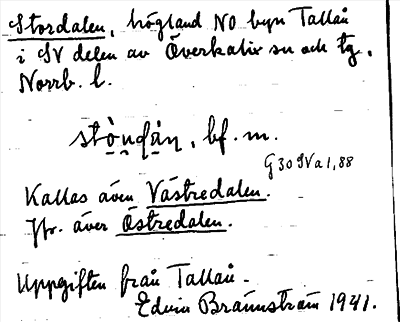 Stordalen, högland NO byn Tallån
i SV delen av Överkalix sn och tg.
Norrb. l.
bf. m.
G 30 SV a 1, 88
Kallas även Västredalen.
Jfr. även Östredalen.
Uppgiften från Tallån.
Edvin Brännström 1941.